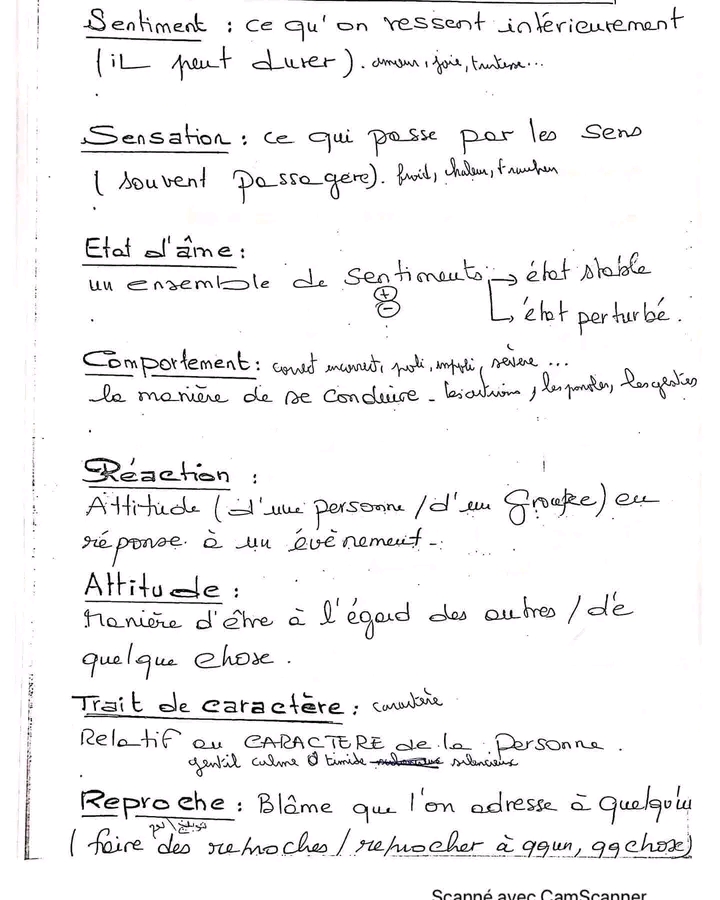 Sentiment : ce qu'on ressent intérieurement
(il peut durer). amour, joie, tristesse...
Sensation : ce qui passe par les sens
( souvent passagère). froid, chaleur, fraicheur
Etat d'âme :
un ensemble de sentiments → état stable
+
-
→ état perturbé.
Comportement : correct incorrect, poli, impoli, sévère ...
la manière de se conduire - les actions, les paroles, les gestes
Réaction :
Attitude (d'une personne / d'un groupe) en
réponse à un évènement -.
Attitude :
Manière d'être à l'égard des autres / de
quelque chose.
Trait de caractère : caractère
Relatif au CARACTERE de la personne.
gentil calme timide silencieux
Reproche : Blâme que l'on adresse à quelqu'u
( faire des reproches / reprocher à qqun, qqchose)
Scanné avec CamScanner